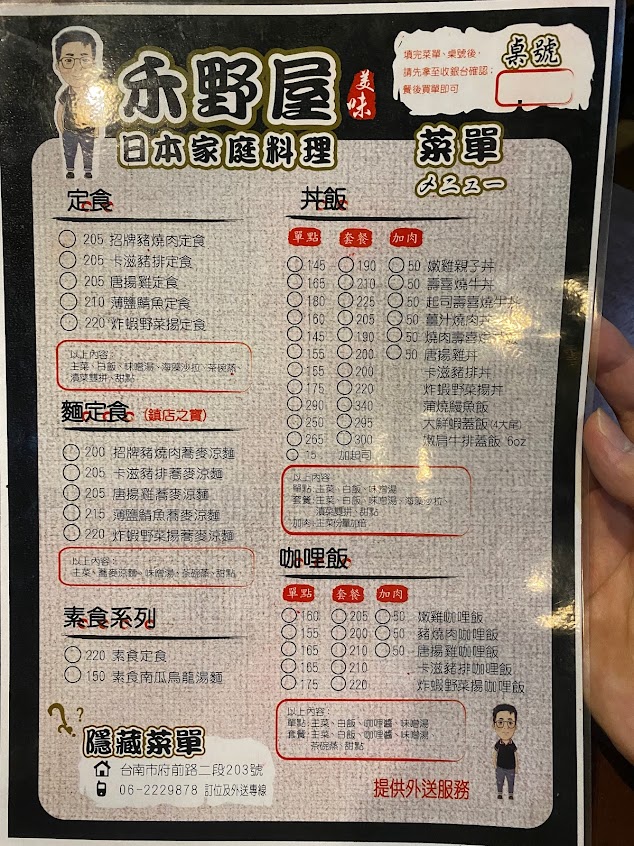 禾野屋
美味
日本家庭料理
填完菜單、桌號後，
請先拿至收銀台確認；
餐後買單即可
桌號
菜單
メニュー
定食
205 招牌豬燒肉定食
205 卡滋豬排定食
205 唐揚雞定食
210 薄鹽鯖魚定食
220 炸蝦野菜揚定食
以上內容：
主菜、白飯、味噌湯、海藻沙拉、茶碗蒸、
漬菜雙拼、甜點
麵定食 (鎮店之寶)
200 招牌豬燒肉蕎麥涼麵
205 卡滋豬排蕎麥涼麵
205 唐揚雞蕎麥涼麵
215 薄鹽鯖魚蕎麥涼麵
220 炸蝦野菜揚蕎麥涼麵
以上內容：
主菜、蕎麥涼麵、味噌湯、茶碗蒸、甜點
素食系列
220 素食定食
150 素食南瓜烏龍湯麵
?
隱藏菜單
台南市府前路二段203號
06-2229878 訂位及外送專線
丼飯
單點 套餐 加肉
145 190 50 嫩雞親子丼
165 210 50 壽喜燒牛丼
180 225 50 起司壽喜燒牛丼
160 205 50 薑汁燒肉丼
145 190 50 燒肉壽喜
155 200 50 唐揚雞丼
155 200 卡滋豬排丼
175 220 炸蝦野菜揚丼
290 340 蒲燒鰻魚飯
250 295 大鮮蝦蓋飯(4大尾)
265 300 嫩肩牛排蓋飯 6oz
15 加起司
以上內容：
單點:主菜、白飯、味噌湯
套餐:主菜、白飯、味噌湯、海藻沙拉、
漬菜雙拼、甜點
加肉:主菜份量加倍
咖哩飯
單點 套餐 加肉
160 205 50 嫩雞咖哩飯
155 200 50 豬燒肉咖哩飯
165 210 50 唐揚雞咖哩飯
165 210 卡滋豬排咖哩飯
175 220 炸蝦野菜揚咖哩飯
以上內容：
單點:主菜、白飯、咖哩醬、味噌湯
套餐:主菜、白飯、咖哩醬、味噌湯
茶碗蒸、甜點
提供外送服務